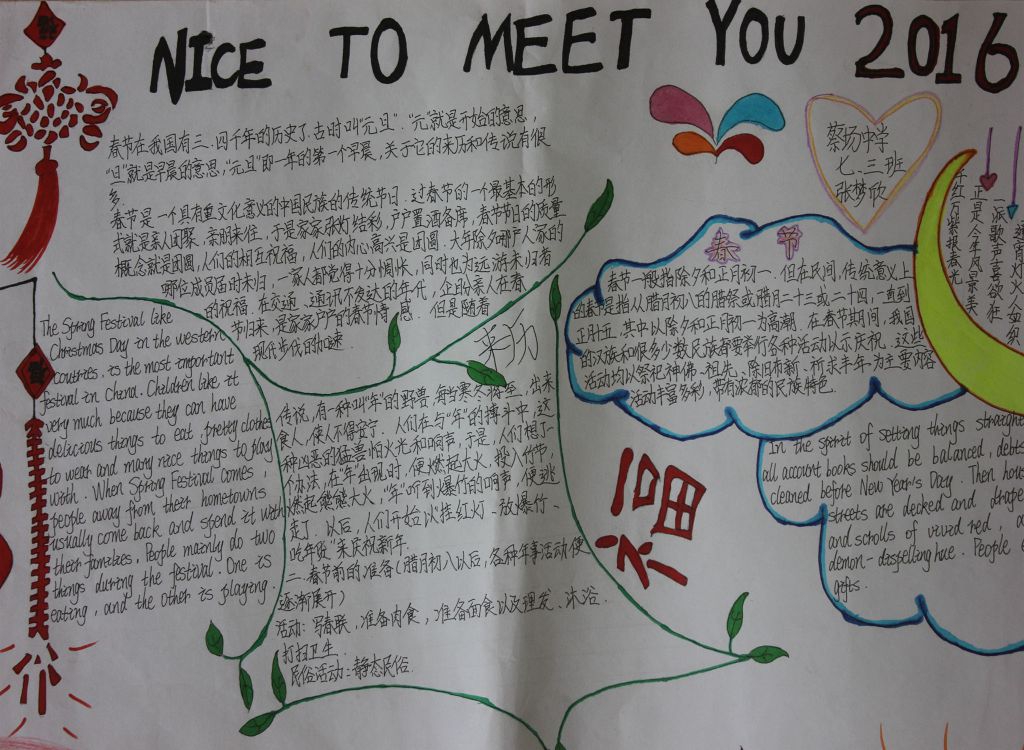 NICE TO MEET YOU 2016
春节在我国有三、四千年的历史了.古时叫"元旦"."元"就是开始的意思,
"旦"就是早晨的意思,"元旦"即一年的第一个早晨,关于它的来历和传说有很
多.
春节是一个具有重文化意义的中国民族的传统节日.过春节的一个最基本的形
式就是亲人团聚、亲朋来往,于是家家张灯结彩,户户置酒备席,春节节日的质量
概念就是团圆,人们的相互祝福,人们的开心高兴是团圆.大年除夕哪户人家的
哪位成员届时未归,一家人都觉得十分惆怅,同时也为远游未归者
的祝福.在交通、通讯不发达的年代,企盼亲人在春
节归来,是家家户户的春节情感.但是随着
现代步伐的加速
The Spring Festival like
Christmas Day in the western
countries. is the most important
festival in China. Children like it
very much because they can have
delicious things to eat, pretty clothes
to wear and many nice things to play
with. When Spring Festival comes,
people away from their hometowns
usually come back and spend it with
their families, People mainly do two
things during the festival. One is
eating, and the other is playing.
来历
传说,有一种叫"年"的野兽.每当寒冬将至,出来
食人,使人不得安宁.人们在与"年"的搏斗中,这
种凶恶的猛兽怕火光和响声,于是,人们想了一
个办法,在"年"出现时,便燃起大火,投入竹节,
燃起熊熊大火,"年"听到爆竹的响声,便逃
走了.以后,人们开始以挂红灯、放爆竹、
吃年饭,来庆祝新年.
二、春节前的准备(腊月初八以后,各种年事活动便
逐渐展开)
活动:写春联,准备肉食,准备面食以及理发、沐浴.
打扫卫生.
民俗活动:静态民俗.
蔡场中学
七、三班
张梦欣
春节
春节一般指除夕和正月初一.但在民间,传统意义上
的春节是指从腊月初八的腊祭或腊月二十三或二十四,一直到
正月十五,其中以除夕和正月初一为高潮.在春节期间,我国
的汉族和很多少数民族都要举行各种活动以示庆祝.这些
活动均以祭祀神佛、祖先、除旧布新、祈求丰年为主要内容
活动丰富多彩,带有浓郁的民族特色.
一派歌声喜欲狂
正是今年风景美
千红万紫报春光
福
In the spirit of setting things straight
all account books should be balanced, debts
cleaned before New Year's Day. Then hous
streets are decked and drape
and scrolls of vivid red, a
demon-dispelling hue. People e
gifts.